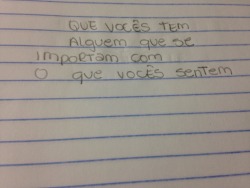 QUE VOCÊS TEM
Alguem que se
importam com
O que vocês sentem